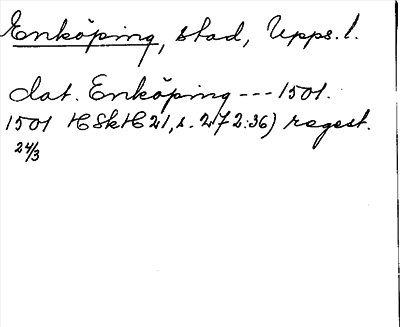 Enköping, stad, Upps. l.
dat. Enköping --- 1501.
1501 HSkH 21, s. 272:36) regest.
24/3